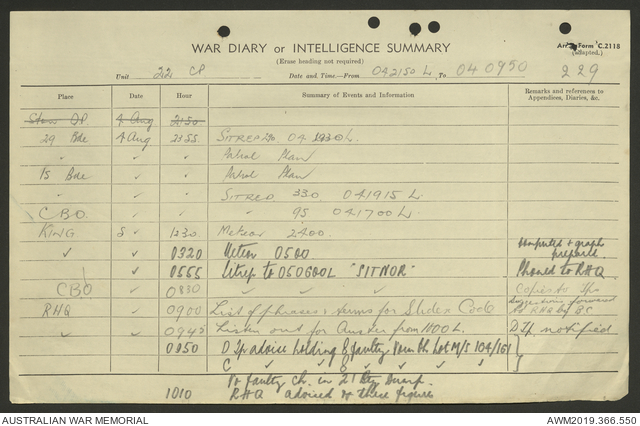 WAR DIARY or INTELLIGENCE SUMMARY
Army Form C.2118
(adapted.)
(Erase heading not required)
Unit 22 CP Date and Time—From 042150L To 040950 229
Place Date Hour Summary of Events and Information Remarks and references to Appendices, Diaries, &c.
4 Aug 2150
29 Bde 4 Aug 2355 SITREP 04 1930L.
" ✓ Patrol Plan
15 Bde ✓ Patrol Plan
✓ SITREP 330 041915 L.
CBO. ✓ " 95 041700 L.
KING 5 ✓ Meteor 2400.
✓ ✓ 0320 Meteor 0500 computed & graph prepared.
✓ 0555 Sitrep to 050600L "SITNOR" Phoned to RHQ
CBO ✓ 0830 ✓ ✓ ✓ Copies to
RHQ ✓ 0900 List of phrases & terms for Slidex Code Suggestions forward to RHQ by BC
" ✓ 0945 Listen out for Auster from 1100 L. notified
0950 D Tp advise holding 8 faulty Lot M/S 104/161
C ✓ 8 ✓ ✓ ✓ ✓
faulty ch. in 21 Bty
1010 RHQ advised of these figures
AUSTRALIAN WAR MEMORIAL AWM2019.366.550